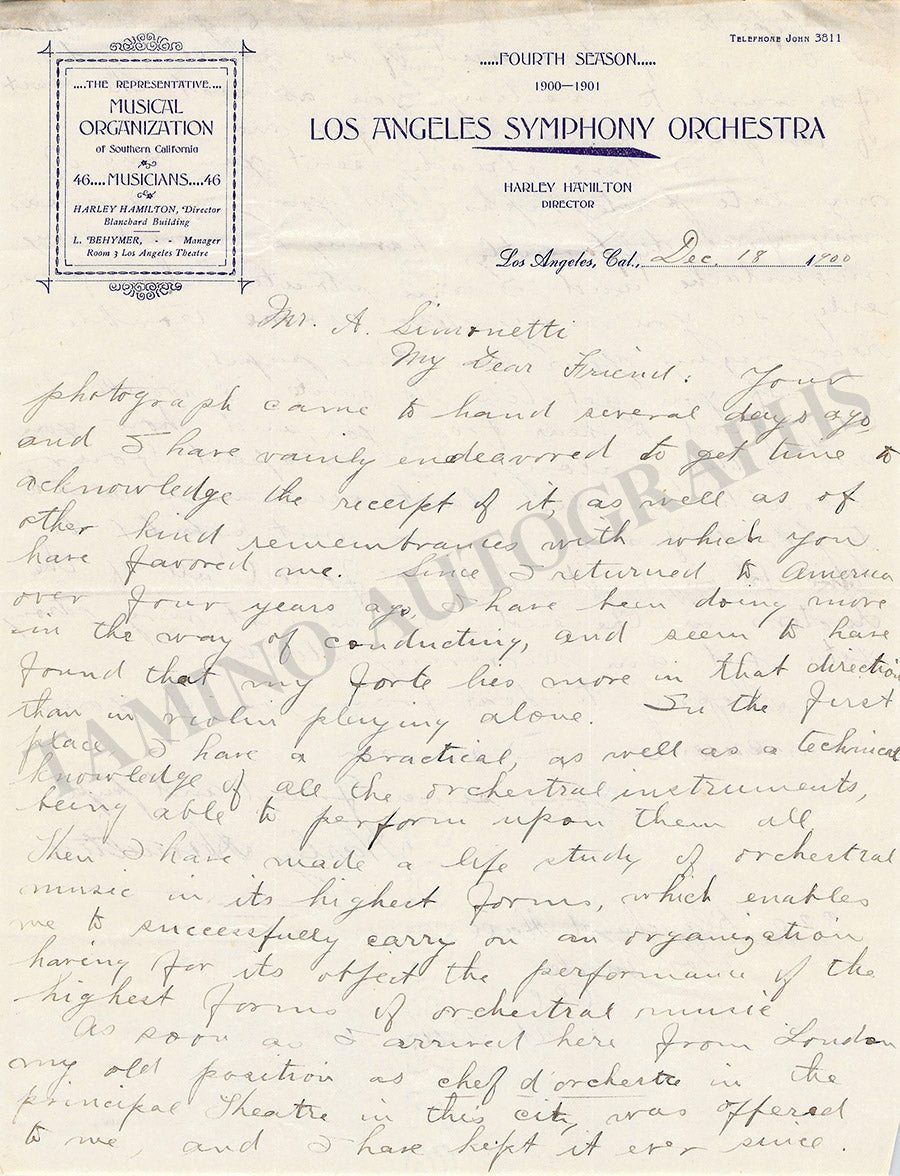 TELEPHONE JOHN 3811
....THE REPRESENTATIVE....
MUSICAL
ORGANIZATION
of Southern California
46....MUSICIANS....46
HARLEY HAMILTON, Director
Blanchard Building
L. BEHYMER, - - Manager
Room 3 Los Angeles Theatre
.....FOURTH SEASON.....
1900—1901
LOS ANGELES SYMPHONY ORCHESTRA
HARLEY HAMILTON
DIRECTOR
Los Angeles, Cal., Dec. 18 1900
Mr. A. Simonetti
My Dear Friend: Your
photograph came to hand several days ago
and I have vainly endeavored to get time to
acknowledge the receipt of it, as well as of
other kind remembrances with which you
have favored me. Since I returned to America
over four years ago I have been doing more
in the way of conducting, and seem to have
found that my forte lies more in that direction
than in violin playing alone. In the first
place I have a practical, as well as a technical
knowledge of all the orchestral instruments,
being able to perform upon them all
Then I have made a life study of orchestral
music in its highest forms, which enables
me to successfully carry on an organization
having for its object the performance of the
highest forms of orchestral music
As soon as I arrived here from London
my old position as chef d'orchestre in the
principal Theatre in this city was offered
to me, and I have kept it ever since.
TAMINO AUTOGRAPHS